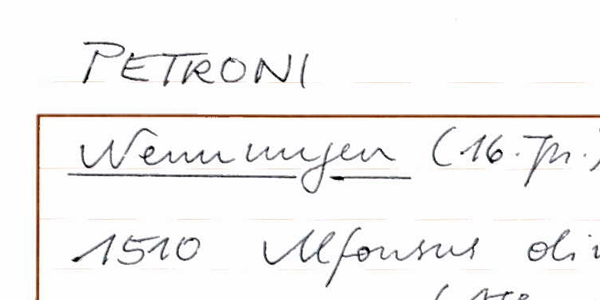 PETRONI
Nennungen (16. Jh.)
1510 Alfonsus